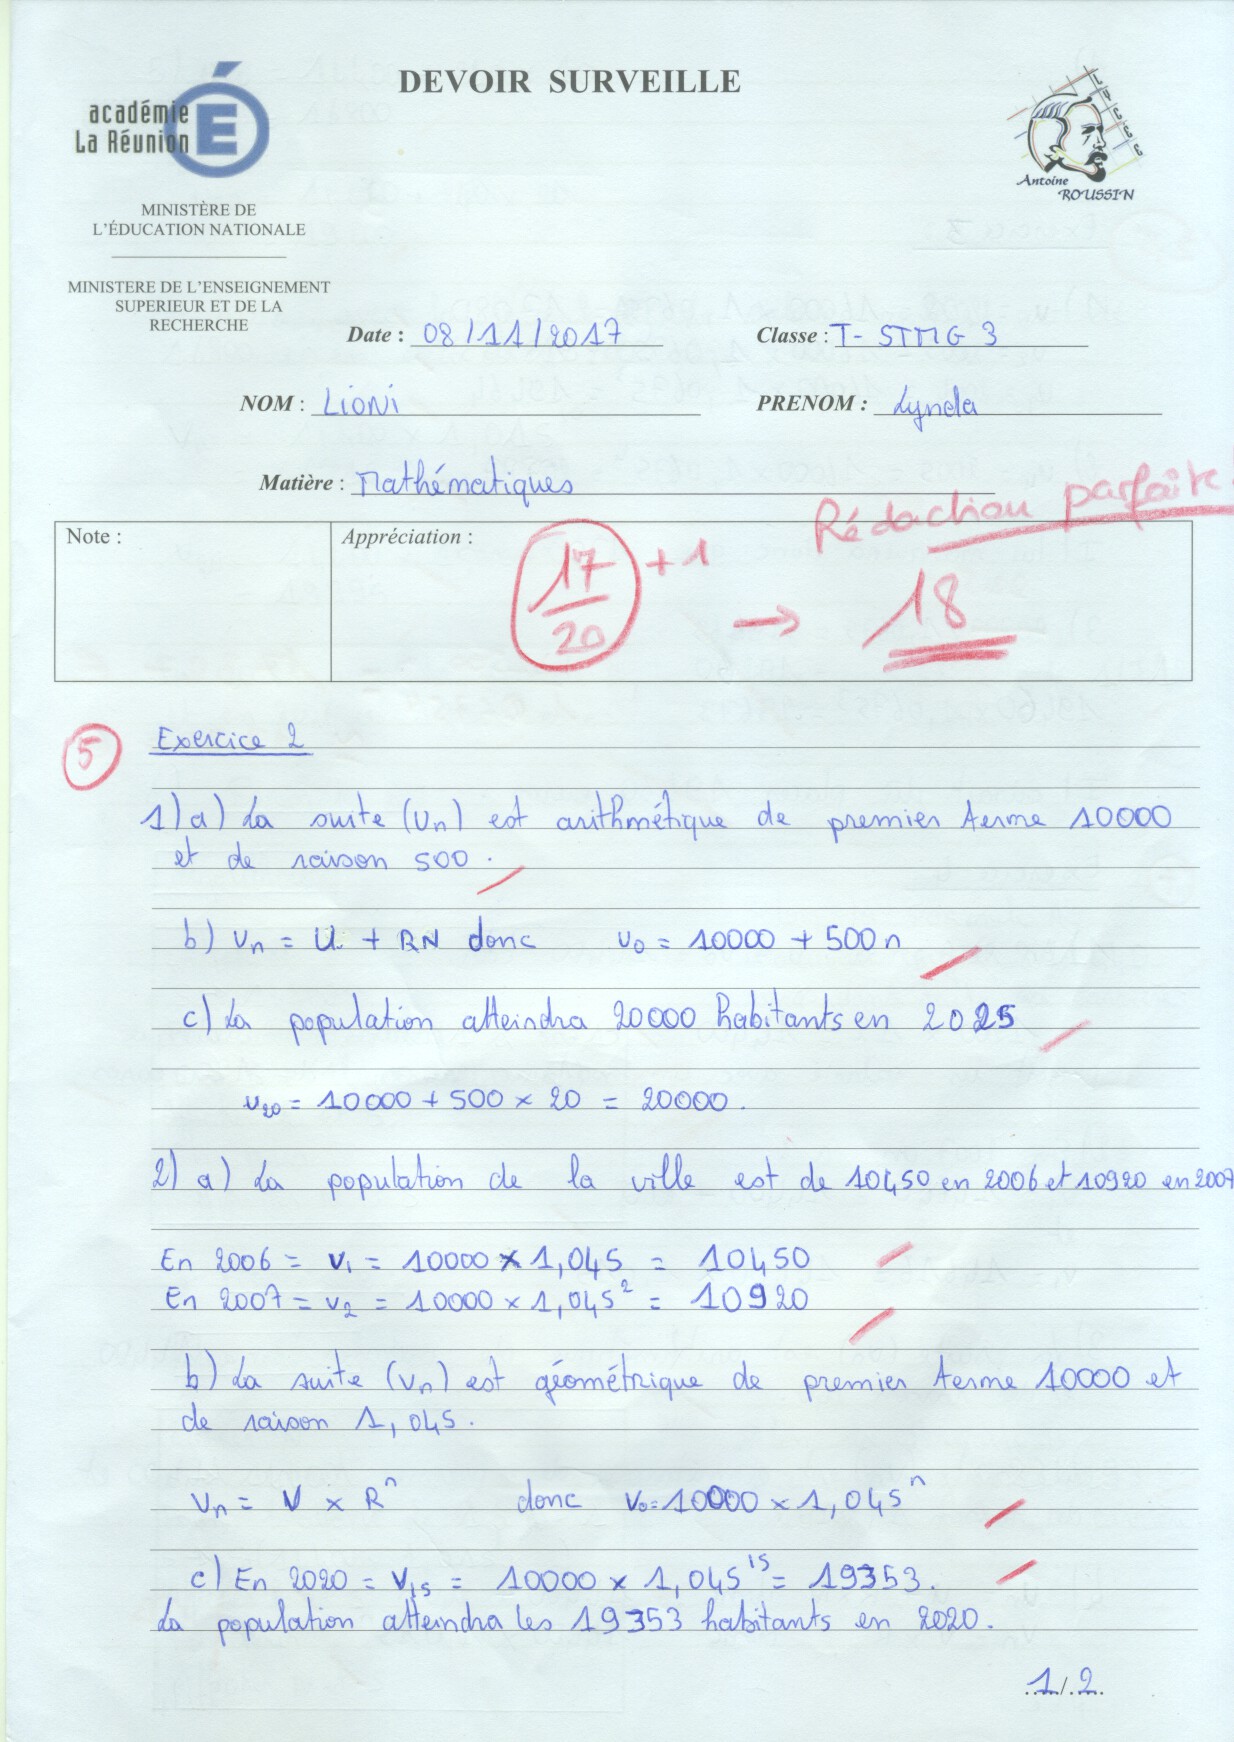 DEVOIR SURVEILLE
académie
La Réunion
Antoine
ROUSSIN
MINISTÈRE DE
L'ÉDUCATION NATIONALE
MINISTERE DE L'ENSEIGNEMENT
SUPERIEUR ET DE LA
RECHERCHE
Date : 08/11/2017 Classe : T-STMG 3
NOM : LIONI PRENOM : Lynda
Matière : Mathématiques
Rédaction parfaite !
Note : Appréciation :
17/20 + 1 → 18
5 Exercice 2
1) a) La suite (Un) est arithmétique de premier terme 10000
et de raison 500.
b) Un = U + RN donc U0 = 10000 + 500n
c) La population atteindra 20000 habitants en 2025
U20 = 10000 + 500 × 20 = 20000.
2) a) La population de la ville est de 10450 en 2006 et 10920 en 2007
En 2006 = V1 = 10000 × 1,045 = 10450
En 2007 = V2 = 10000 × 1,045² = 10920
b) La suite (Vn) est géométrique de premier terme 10000 et
de raison 1,045.
Vn = V × Rⁿ donc V0 = 10000 × 1,045ⁿ
c) En 2020 = V15 = 10000 × 1,045¹⁵ = 19353.
La population atteindra les 19353 habitants en 2020.
1/2